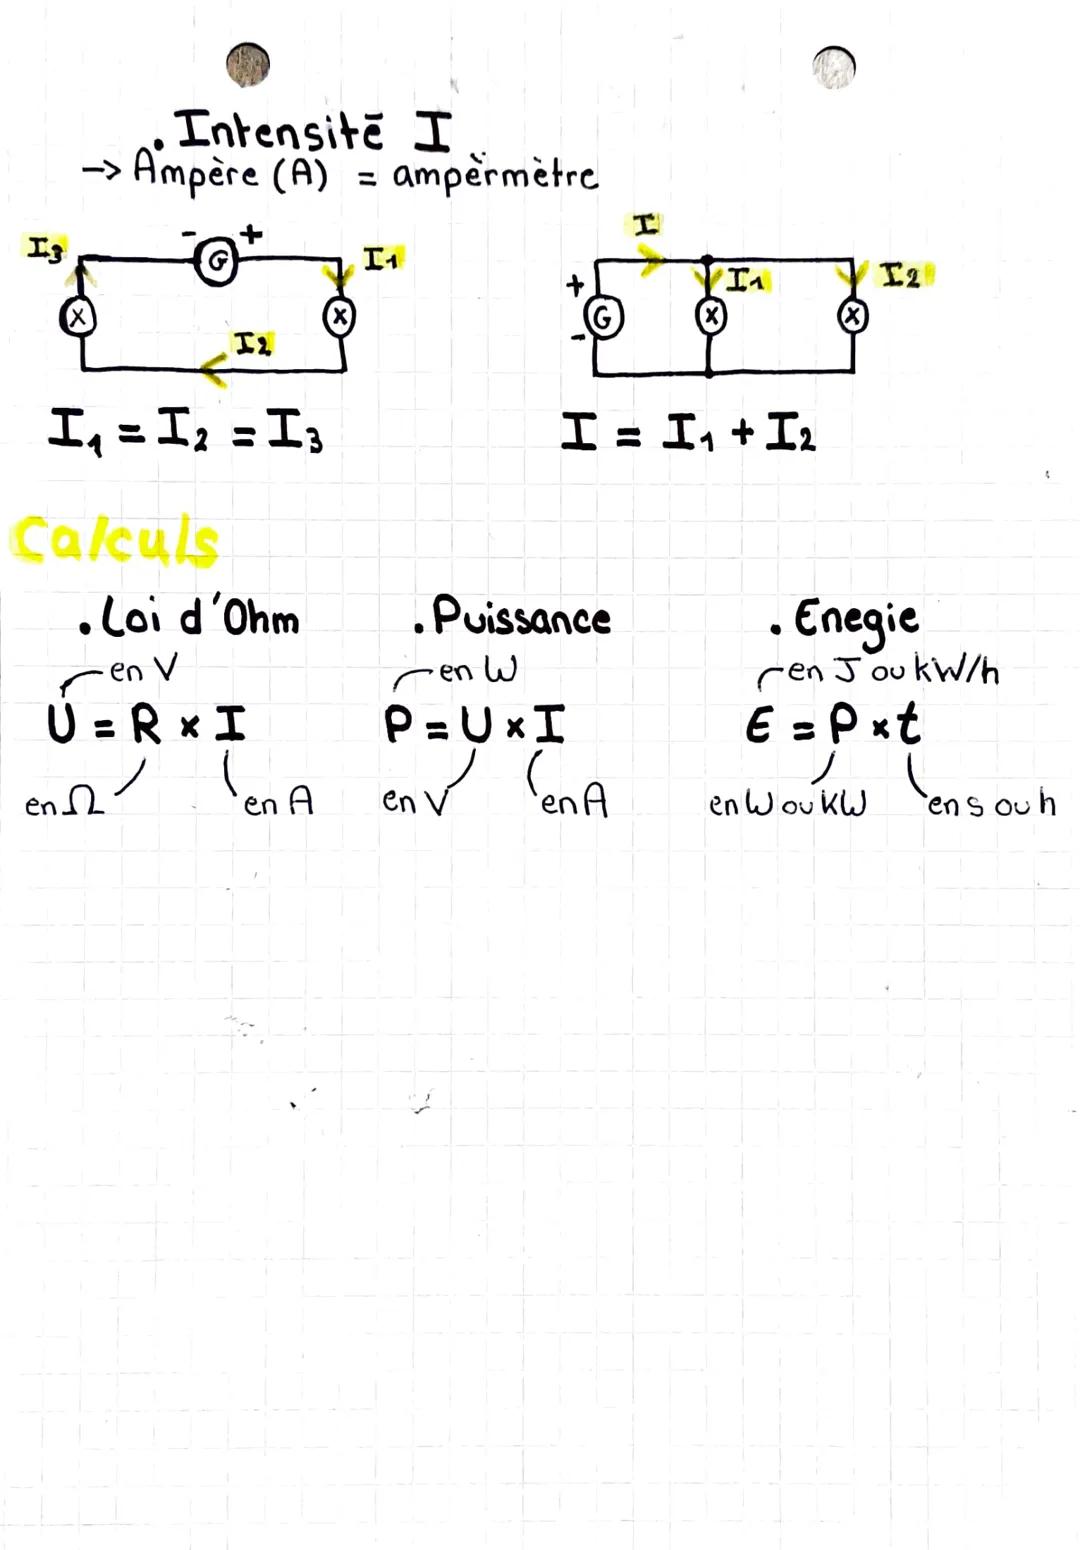 . Intensité I
-> Ampère (A) = ampèrmètre
I3 - G + I1
X X
I2
I₁ = I₂ = I₃
I
+ G - I1 I2
X X
I = I₁ + I₂
Calculs
. Loi d'Ohm
en V
U = R × I
en Ω en A
. Puissance
en W
P = U × I
en V en A
. Enegie
en J ou kW/h
E = P × t
en W ou kW en s ou h